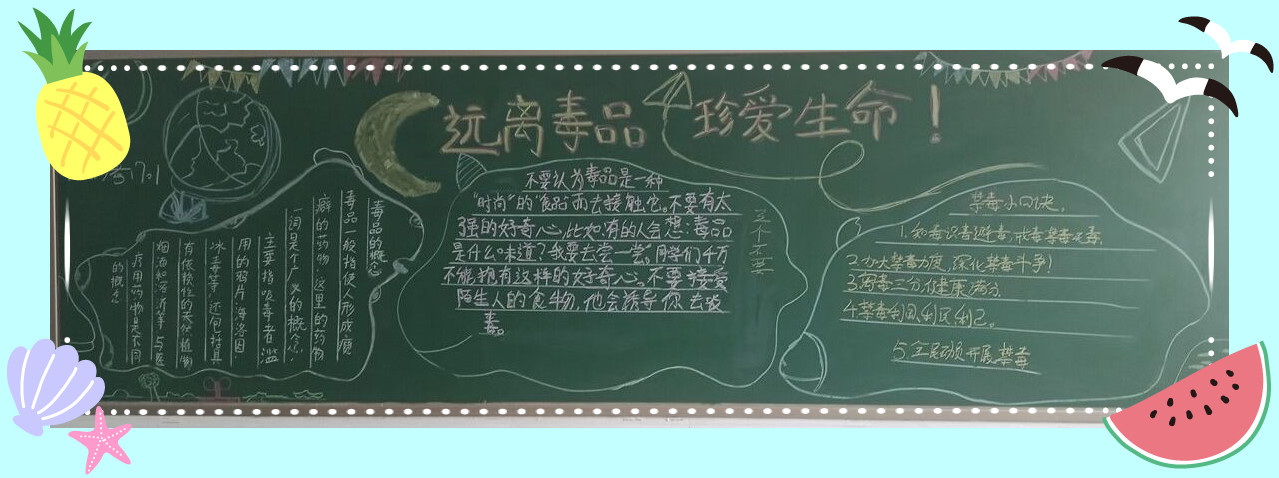 远离毒品 珍爱生命！
毒品的概念
毒品一般指使人形成瘾
癖的药物，这里的药物
一词是个广义的概念，
主要指吸毒者滥
用的鸦片、海洛因
冰毒等，还包括具
有依赖性的天然植物
烟、酒和溶剂等，与医
疗用药物是不同
的概念。
不要认为毒品是一种
"时尚"的"食品"而去接触它。不要有太
强的好奇心，比如有的人会想：毒品
是什么味道？我要去尝一尝。同学们千万
不能拥有这样的好奇心，不要接受
陌生人的食物，他会诱导你去吸
毒。
三个不要
禁毒小口诀，
1.知毒识毒避毒，戒毒禁毒
2.加大禁毒力度，深化禁毒斗争！
3.两毒二分，健康满分
4.禁毒利国，利民，利己。
5.全民 开展禁毒